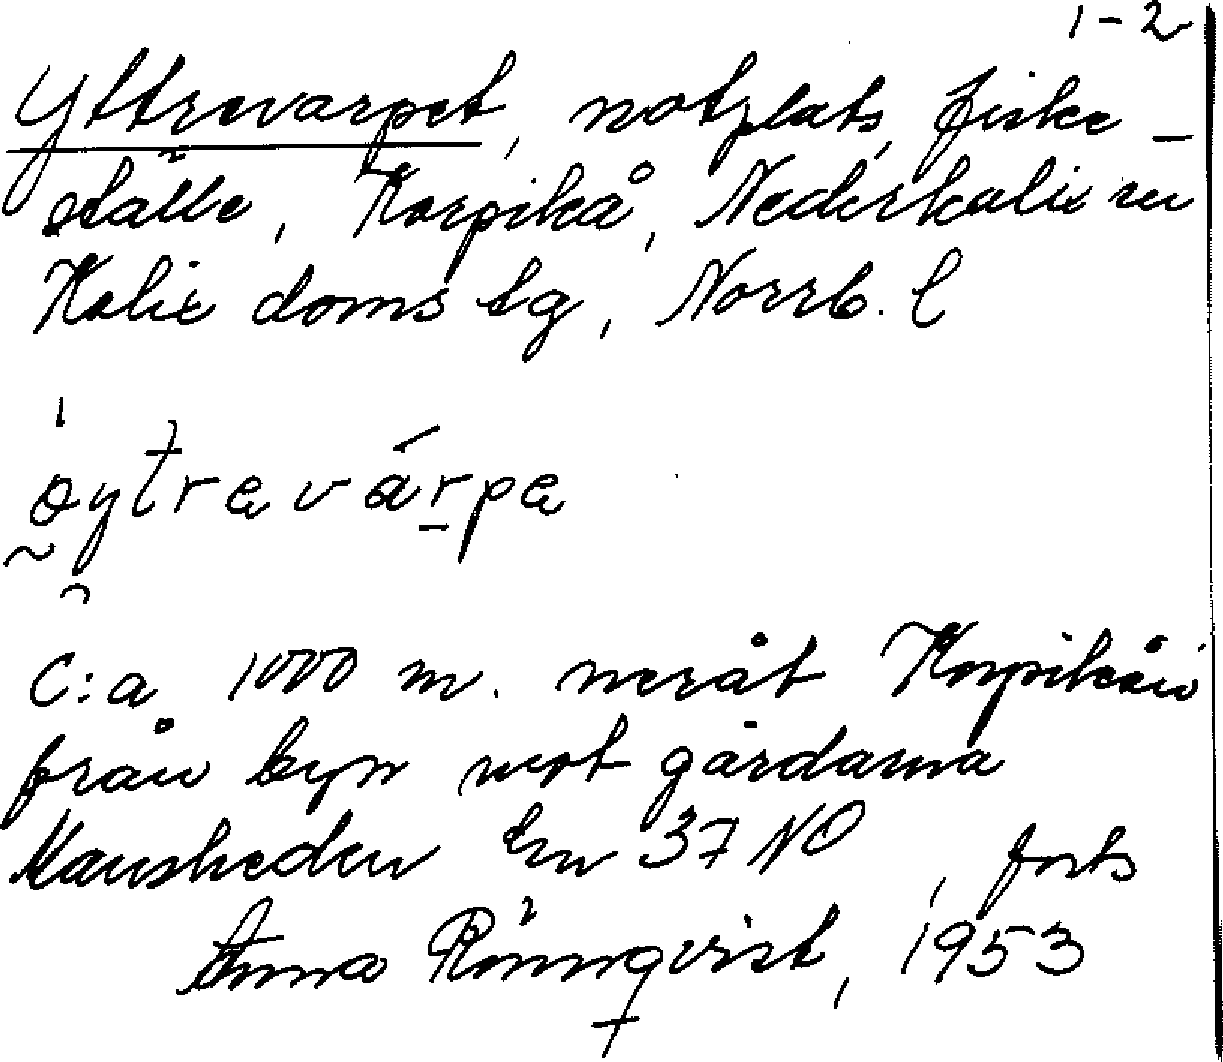 1-2
Yttrevarpet, notplats, fiske-
ställe, Korpikå, Nederkalix sn
Kalix doms tg, Norrb. l
öytrevárpe
C:a 1000 m. neråt Korpikån
från byn mot gårdarna
Mansheden Km 37 NO, forts
Anna Rönnqvist, 1953